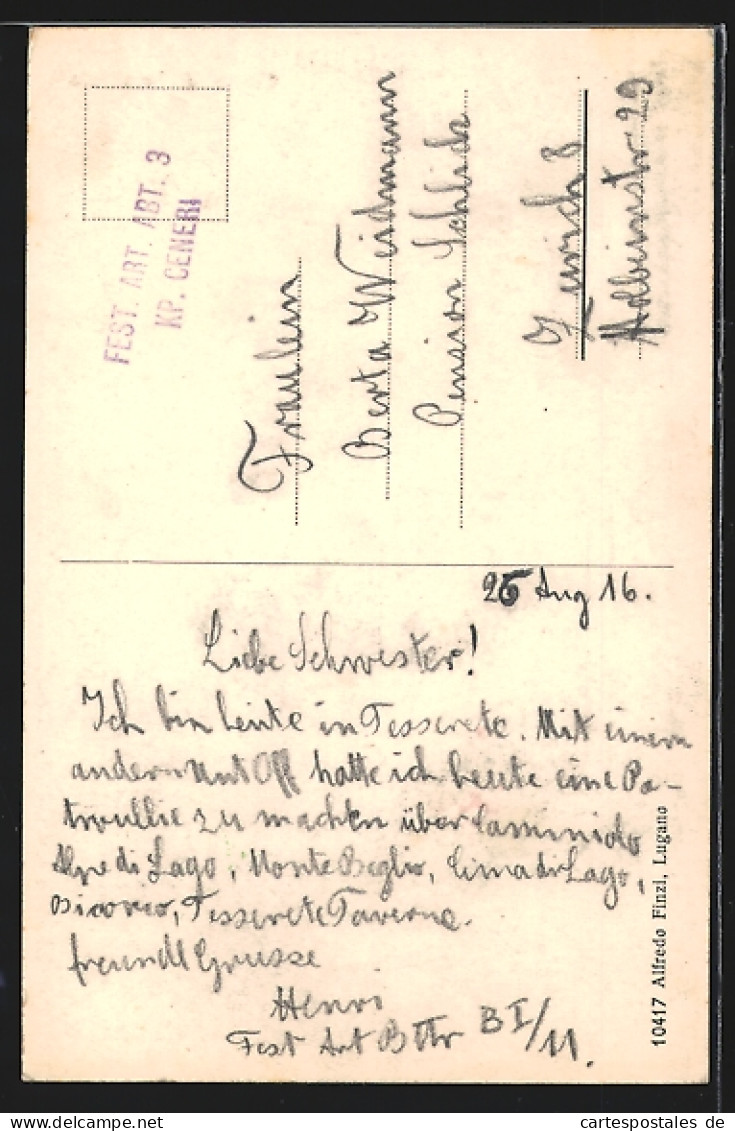 FEST. ART. ABT. 3
KP. CENERI
Fraulein
Berta Weidmann
Pension Schlick
Zürich 8
Holbeinstr 29
26 Aug 16.
Liebe Schwester!
Ich bin heute in Tesserete. Mit einem
andern Unt Off hatte ich heute eine Pa-
troullie zu machen über
Alpe di Lago, Monte Beglio, Cima di Lago,
Tesserete Taverne.
freundl Grüsse
Henri
Fest Art Bttr B I/11.
10417 Alfredo Finzi, Lugano
cartespostales de